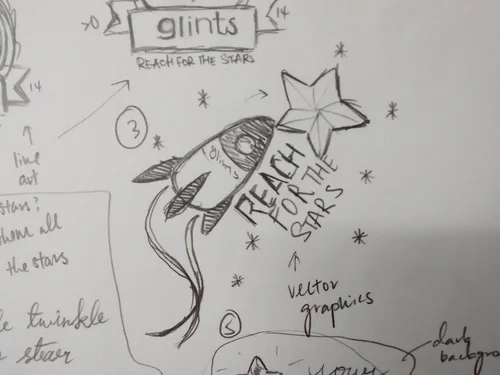 glints
14
REACH FOR THE STARS
14
3
line
art
glints
REACH
FOR THE
STARS
stars?
them all
the stars
twinkle
vector
graphics
5
dark